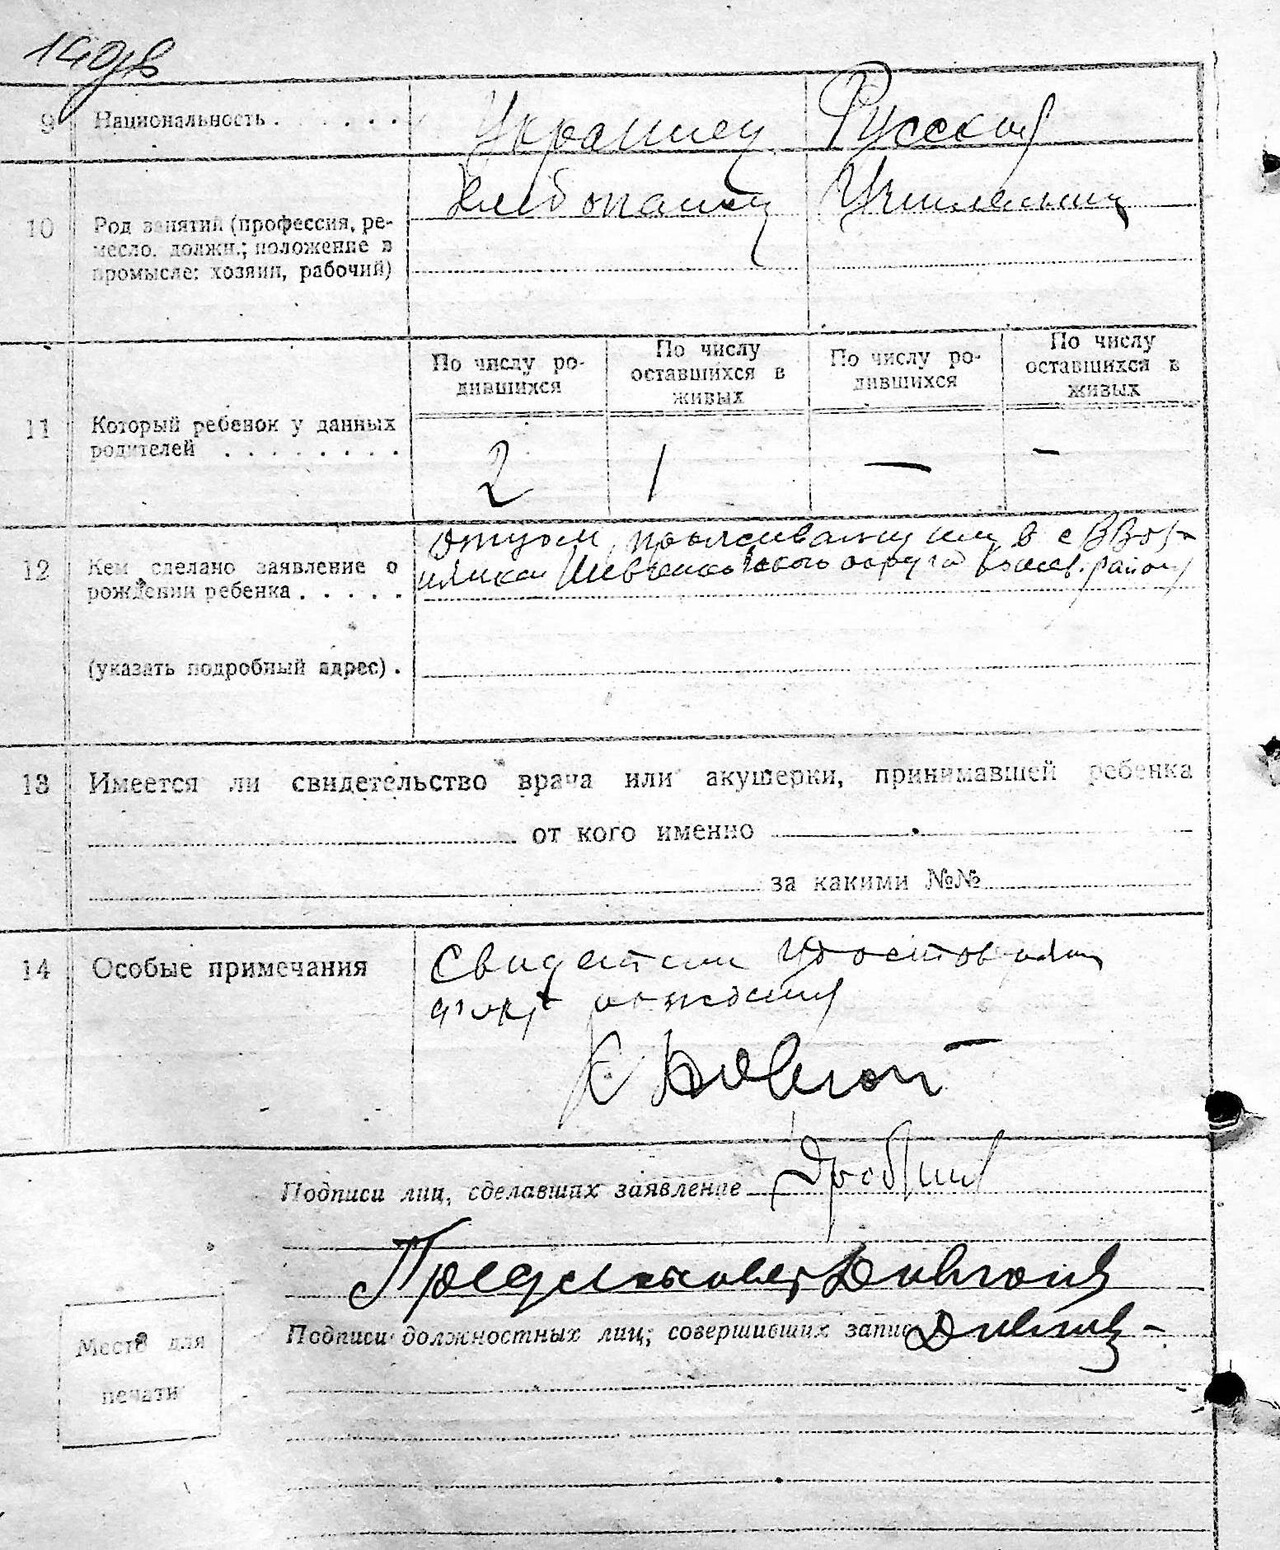 9 Национальность . . . . . . Украинец Русская
Хлебопашец Учительница
10 Род занятий (профессия, ре-
месло, должн.; положение в
промысле: хозяин, рабочий)
По числу ро-
дившихся
По числу
оставшихся в
живых
По числу ро-
дившихся
По числу
оставшихся в
живых
11 Который ребенок у данных
родителей . . . . . . . .
2 1 — -
Отцом, проживающим в с
округа район
12 Кем сделано заявление о
рождении ребенка . . . . .
(указать подробный адрес) .
13 Имеется ли свидетельство врача или акушерки, принимавшей ребенка
от кого именно
за какими №№
14 Особые примечания
Свидетели удостоверяющ
факт рождения
Подписи лиц, сделавших заявление
Подписи должностных лиц; совершивших запис
Место для
печати